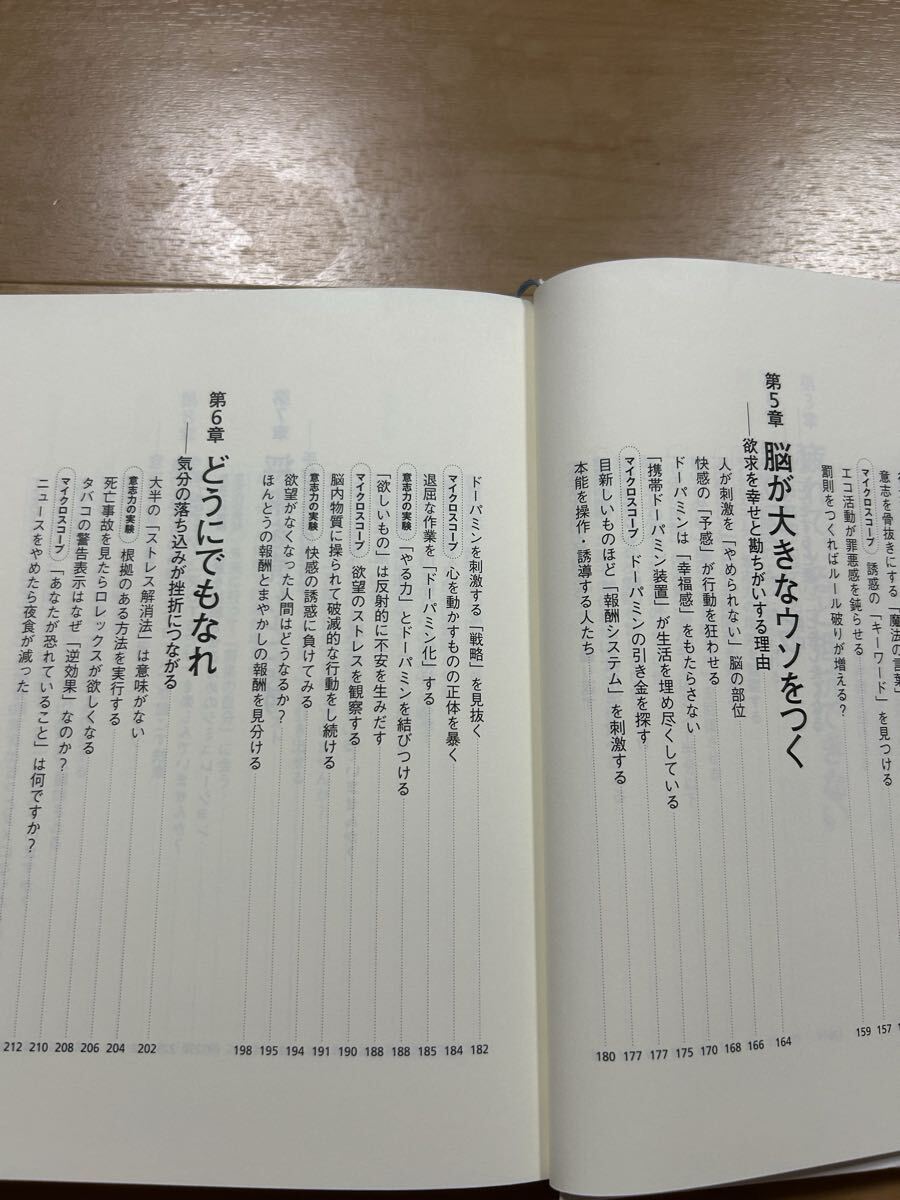 意志を骨抜きにする「魔法の言葉」
マイクロスコープ 誘惑の「キーワード」を見つける
エコ活動が罪悪感を鈍らせる 157
罰則をつくればルール破りが増える? 159
第5章 脳が大きなウソをつく
──欲求を幸せと勘ちがいする理由 164
人が刺激を「やめられない」脳の部位 166
快感の「予感」が行動を狂わせる 168
ドーパミンは「幸福感」をもたらさない 170
「携帯ドーパミン装置」が生活を埋め尽くしている 175
マイクロスコープ ドーパミンの引き金を探す 177
目新しいものほど「報酬システム」を刺激する 177
本能を操作・誘導する人たち 180
ドーパミンを刺激する「戦略」を見抜く 182
マイクロスコープ 心を動かすものの正体を暴く 184
退屈な作業を「ドーパミン化」する 185
意志力の実験 「やる力」とドーパミンを結びつける 188
「欲しいもの」は反射的に不安を生みだす 188
マイクロスコープ 欲望のストレスを観察する 190
脳内物質に操られて破滅的な行動をし続ける 191
意志力の実験 快感の誘惑に負けてみる 194
欲望がなくなった人間はどうなるか? 195
ほんとうの報酬とまやかしの報酬を見分ける 198
第6章 どうにでもなれ
──気分の落ち込みが挫折につながる
大半の「ストレス解消法」は意味がない 202
意志力の実験 根拠のある方法を実行する 204
死亡事故を見たらロレックスが欲しくなる 206
タバコの警告表示はなぜ「逆効果」なのか? 208
マイクロスコープ 「あなたが恐れていること」は何ですか? 210
ニュースをやめたら夜食が減った 212